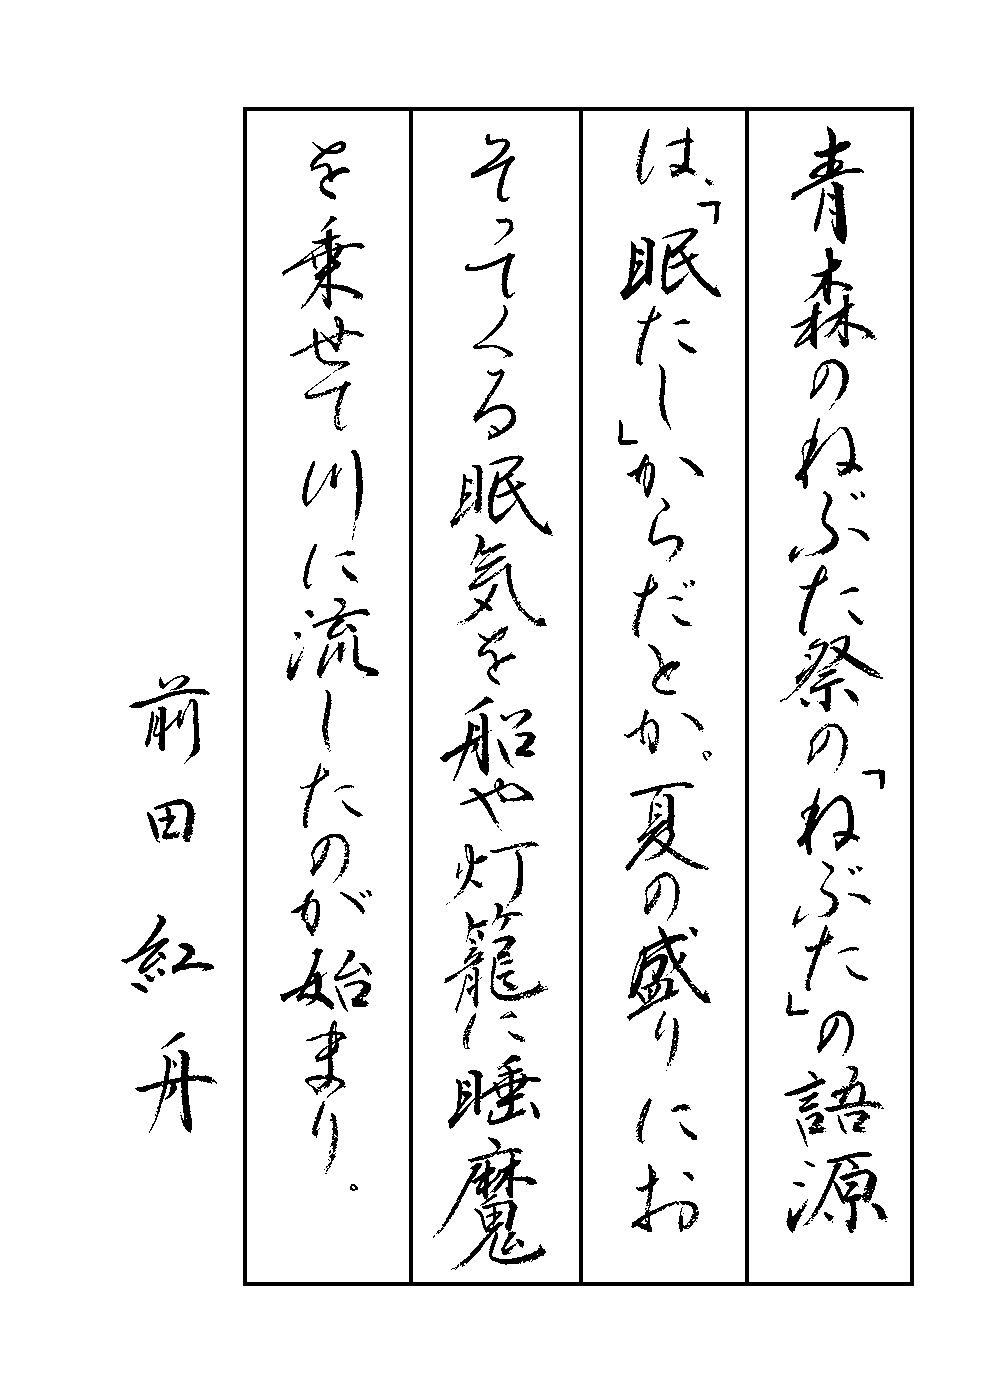 青森のねぶた祭の「ねぶた」の語源
は、「眠たし」からだとか。夏の盛りにお
そってくる眠気を船や灯籠に睡魔
を乗せて川に流したのが始まり。
前田紅舟